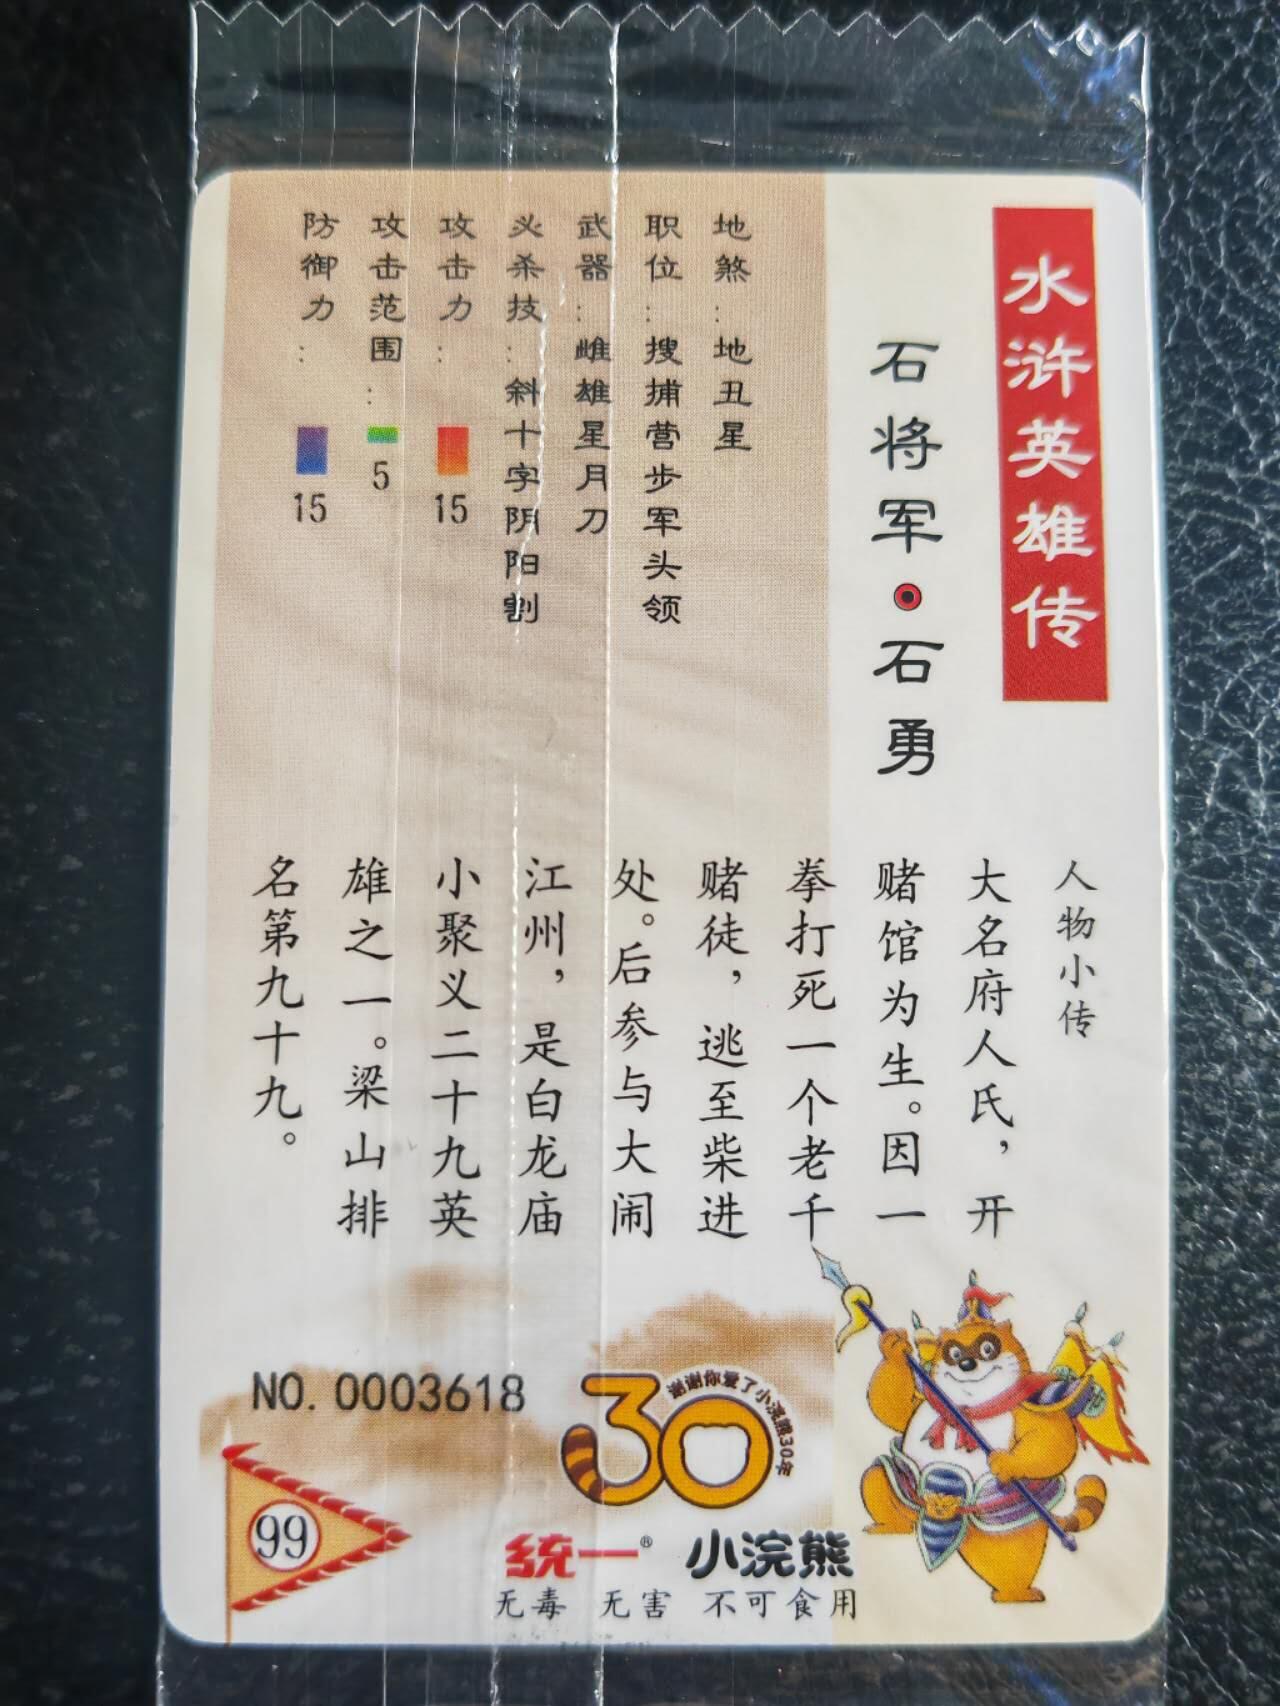 水浒英雄传
石将军·石勇
地煞：地丑星
职位：搜捕营步军头领
武器：雌雄星月刀
必杀技：斜十字阴阳割
攻击力：15
攻击范围：5
防御力：15
人物小传
大名府人氏，开
赌馆为生。因一
拳打死一个老千
赌徒，逃至柴进
处。后参与大闹
江州，是白龙庙
小聚义二十九英
雄之一。梁山排
名第九十九。
NO.0003618
30
谢谢你爱了小浣熊30年
99
统一® 小浣熊
无毒 无害 不可食用